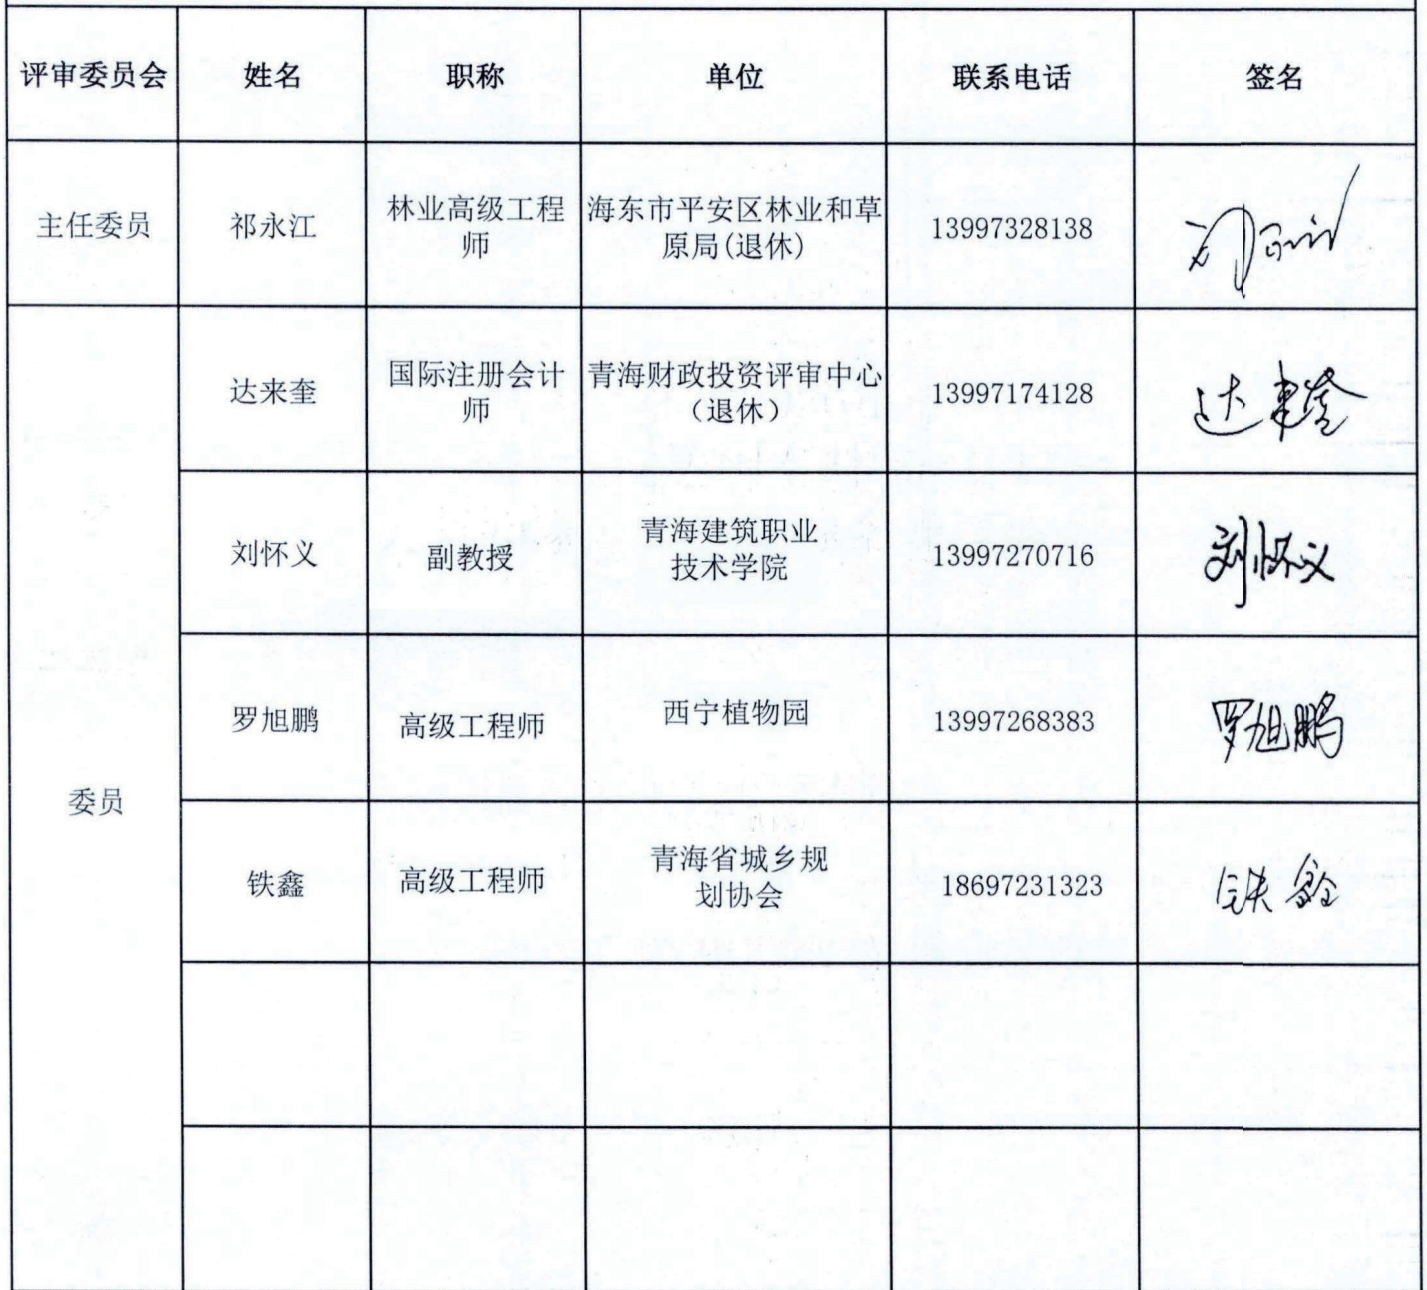 评审委员会 姓名 职称 单位 联系电话 签名
主任委员 祁永江 林业高级工程师 海东市平安区林业和草原局(退休) 13997328138
委员
达来奎 国际注册会计师 青海财政投资评审中心（退休） 13997174128 达来奎
刘怀义 副教授 青海建筑职业技术学院 13997270716 刘怀义
罗旭鹏 高级工程师 西宁植物园 13997268383 罗旭鹏
铁鑫 高级工程师 青海省城乡规划协会 18697231323 铁鑫